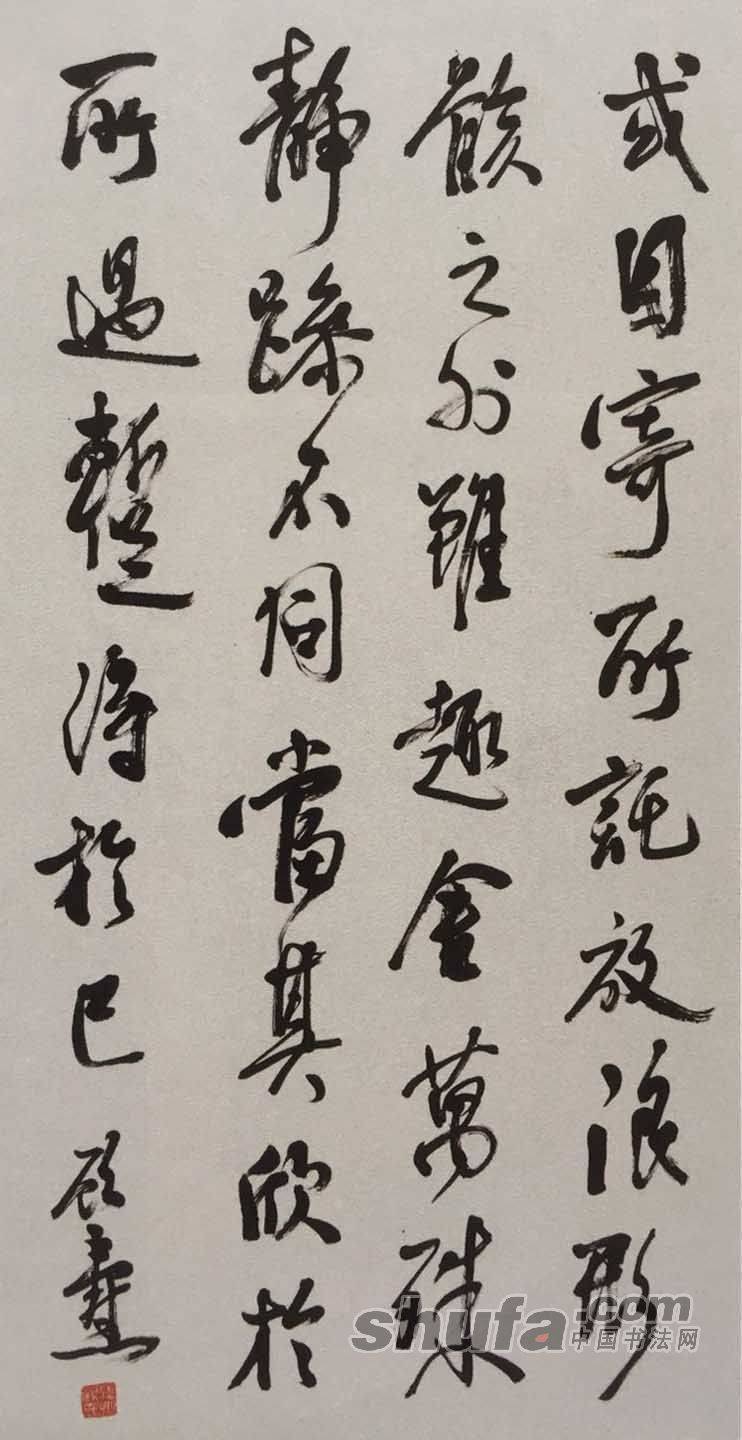 或因寄所託放浪形
骸之外雖趣舍萬殊
靜躁不同當其欣於
所遇暫得於己
shufa.com
中国书法网